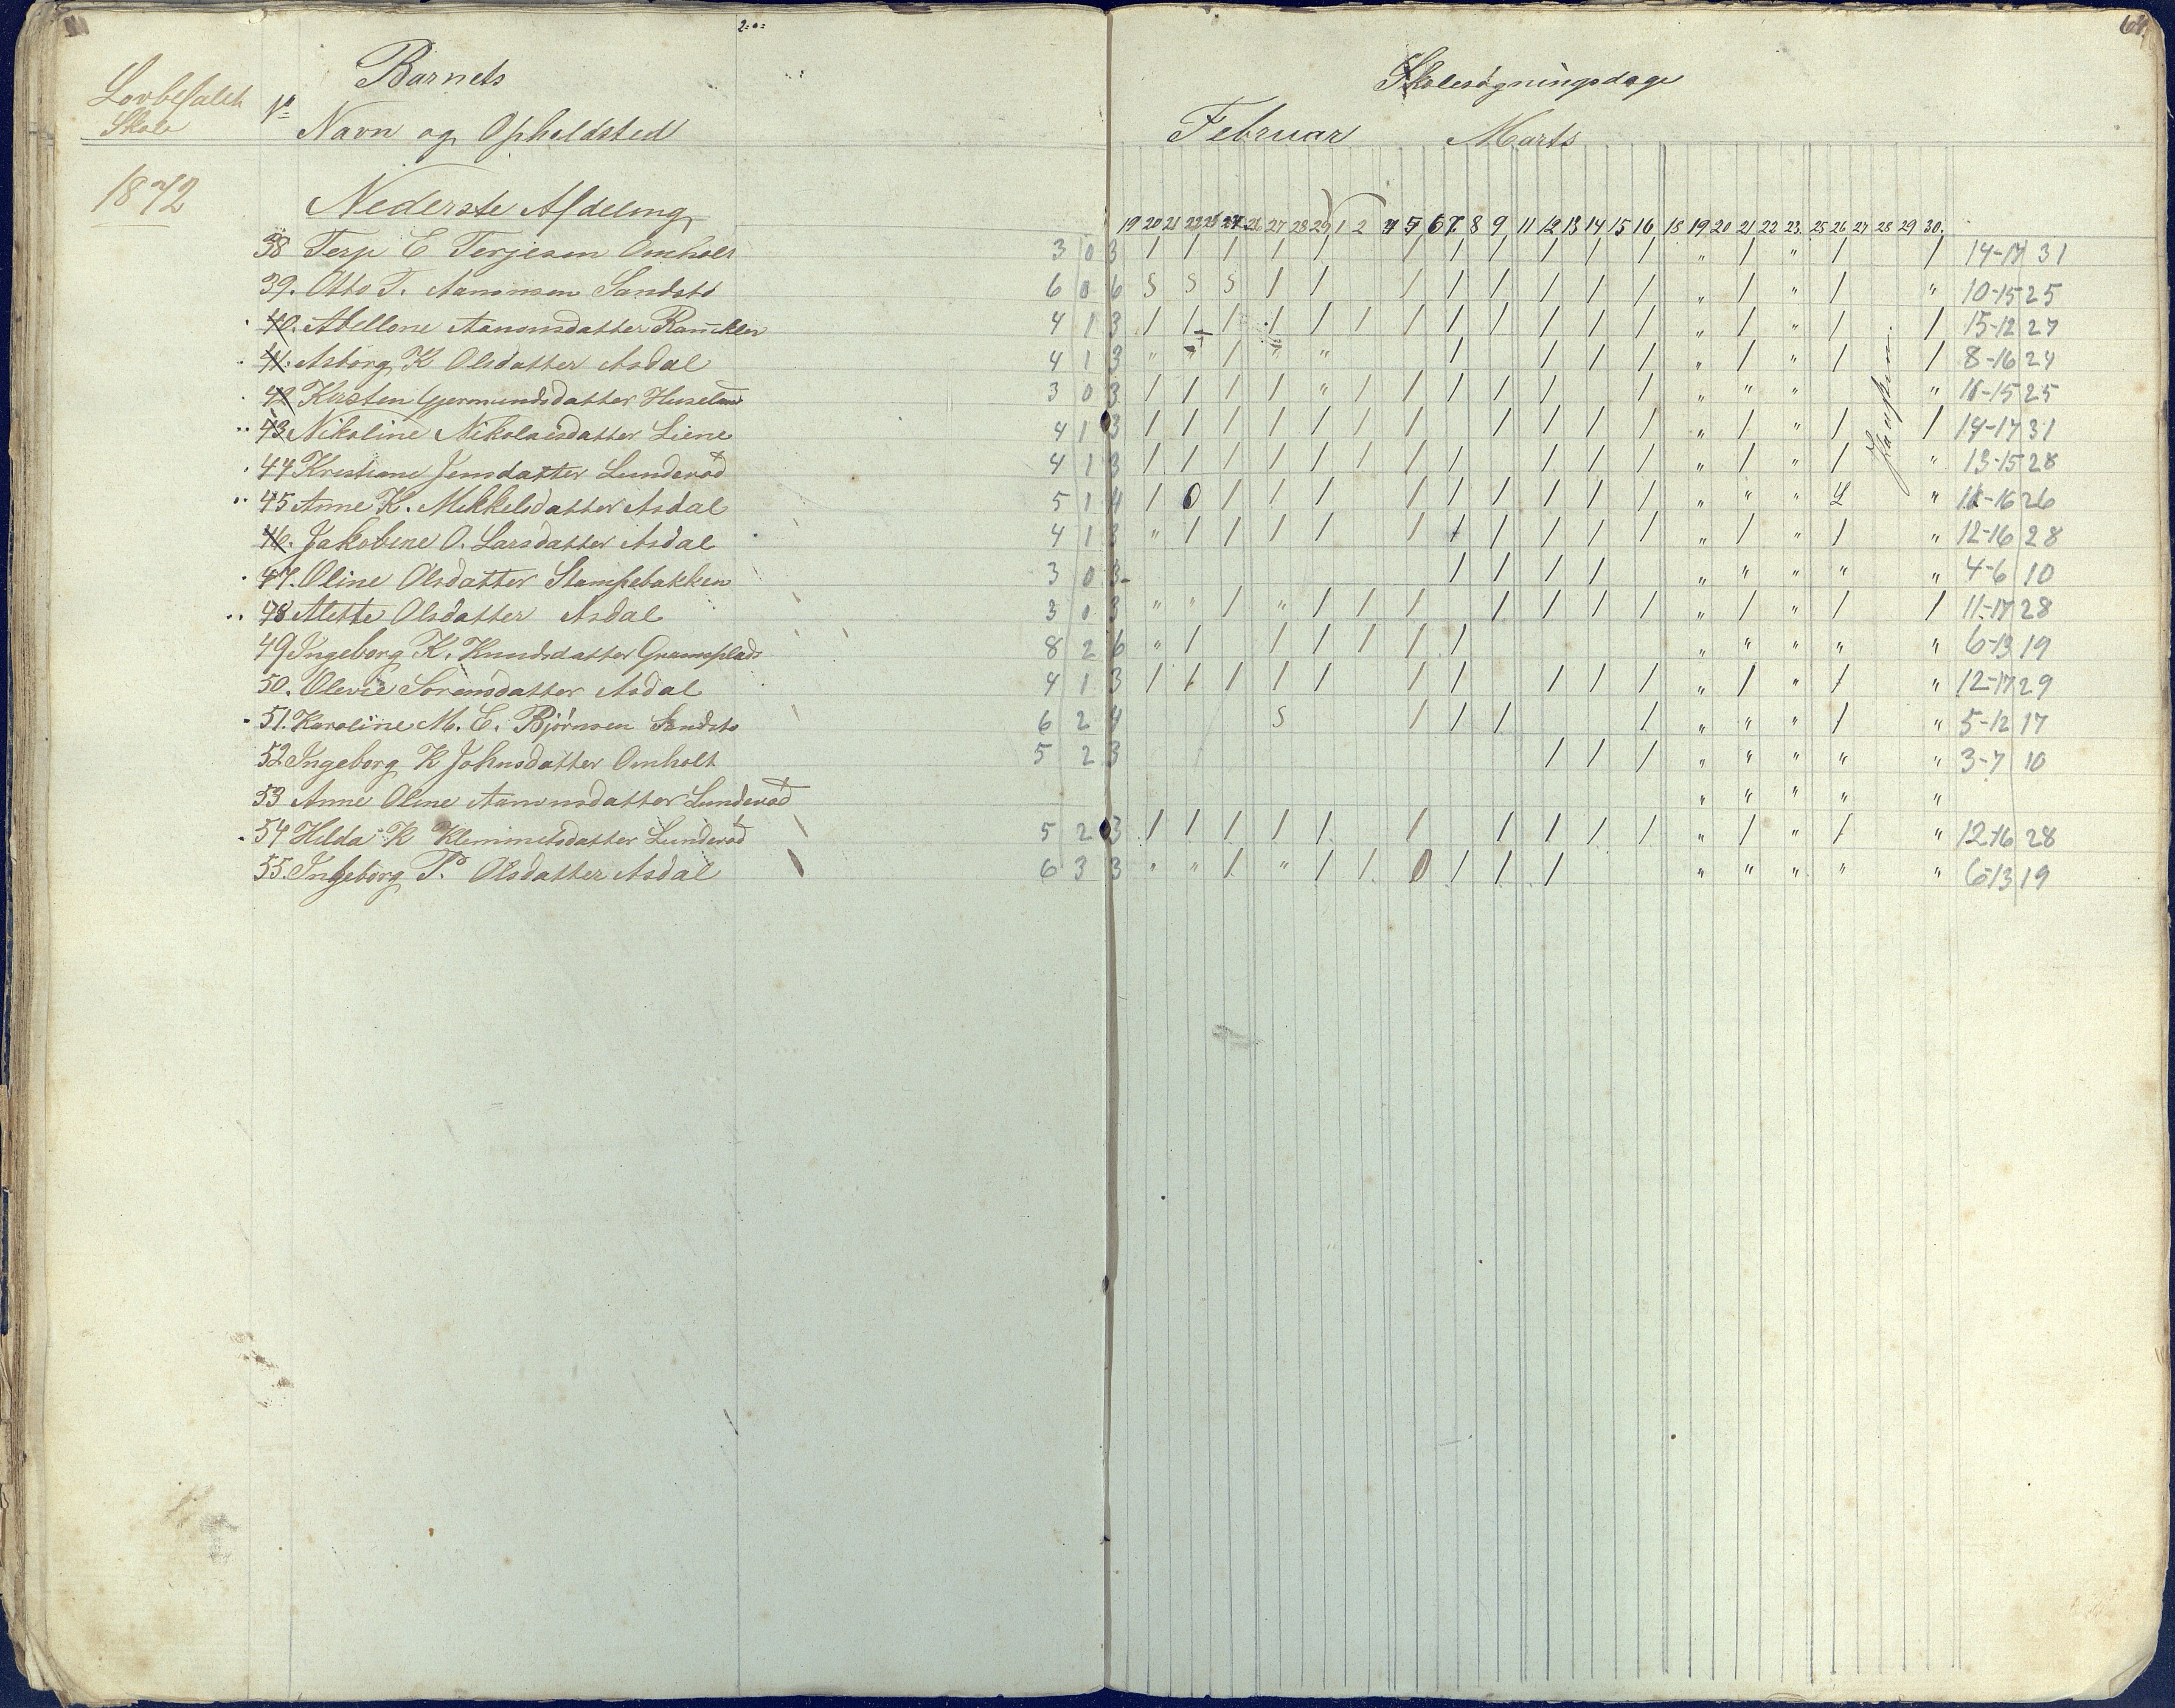 64.
Lovbefalet Skole
Nº
Barnets
Navn og Opholdsted
Skolesøgningsdage
Februar Marts
1872
Nederste Afdeling
19 20 21 22 23 24 26 27 28 29 1 2 4 5 6 7 8 9 11 12 13 14 15 16 18 19 20 21 22 23 25 26 27 28 29 30.
38 Terje E Terjesen Omholt 3 0 3 / / / / / / / / / / / / " / " / / 14-17 31
39. Otto T. Aamonsen Sandstø 6 0 6 S S S / / / / / / / / / " / " / " 10-15 25
40. Abellone Aanonsdatter 4 1 3 / / / / / / / / / / / / / " / " / / 15-12 27
41. Asborg K Olsdatter Asdal 4 1 3 " " / " " / / / / / " / " / / 8-16 24
42 Kirsten Gjermundsdatter 3 0 3 / / / / " / / / / / / " " " " 10-15 25
43 Nikoline Nikolaisdatter Liene 4 1 3 / / / / / / / / / / / / " / " / / 14-17 31
44 Kristiane Jensdatter Lunderød 4 1 3 / / / / / / / / / / / / " / " / " 13-15 28
45 Anne K. Mikkelsdatter Asdal 5 1 4 / 0 / / / / / / / / / / " " " " 10-16 26
46. Jakobine O. Larsdatter Asdal 4 1 3 " / / / / / / / / / / / " / " / " 12-16 28
47. Oline Olsdatter Stampebakken 3 0 3 / / / / " " " " " 4-6 10
48 Alette Olsdatter Asdal 3 0 3 " " / " / / / / / / / / " / " / / 11-17 28
49 Ingeborg K. Knudsdatter 8 2 6 " / / / / / / " " " " " 6-13 19
50. Olevie Sørensdatter Asdal 4 1 3 / / / / / / / / / / " / " / " 12-17 29
51. Karoline M. E. Bjørnsen Sandstø 6 2 4 S / / / / " " " / " 5-12 17
52 Ingeborg K Johnsdatter Omholt 5 2 3 / / / " " " " " 3-7 10
53 Anne Oline Aanonsdatter Lunderød " " " " "
54 Hilda K Klemmetsdatter Lunderød 5 2 3 / / / / / / / / / / " / " / " 12-16 28
55. Ingeborg P. Olsdatter Asdal 6 3 3 " " / " / / 0 / / / " " " " " 6-13 19